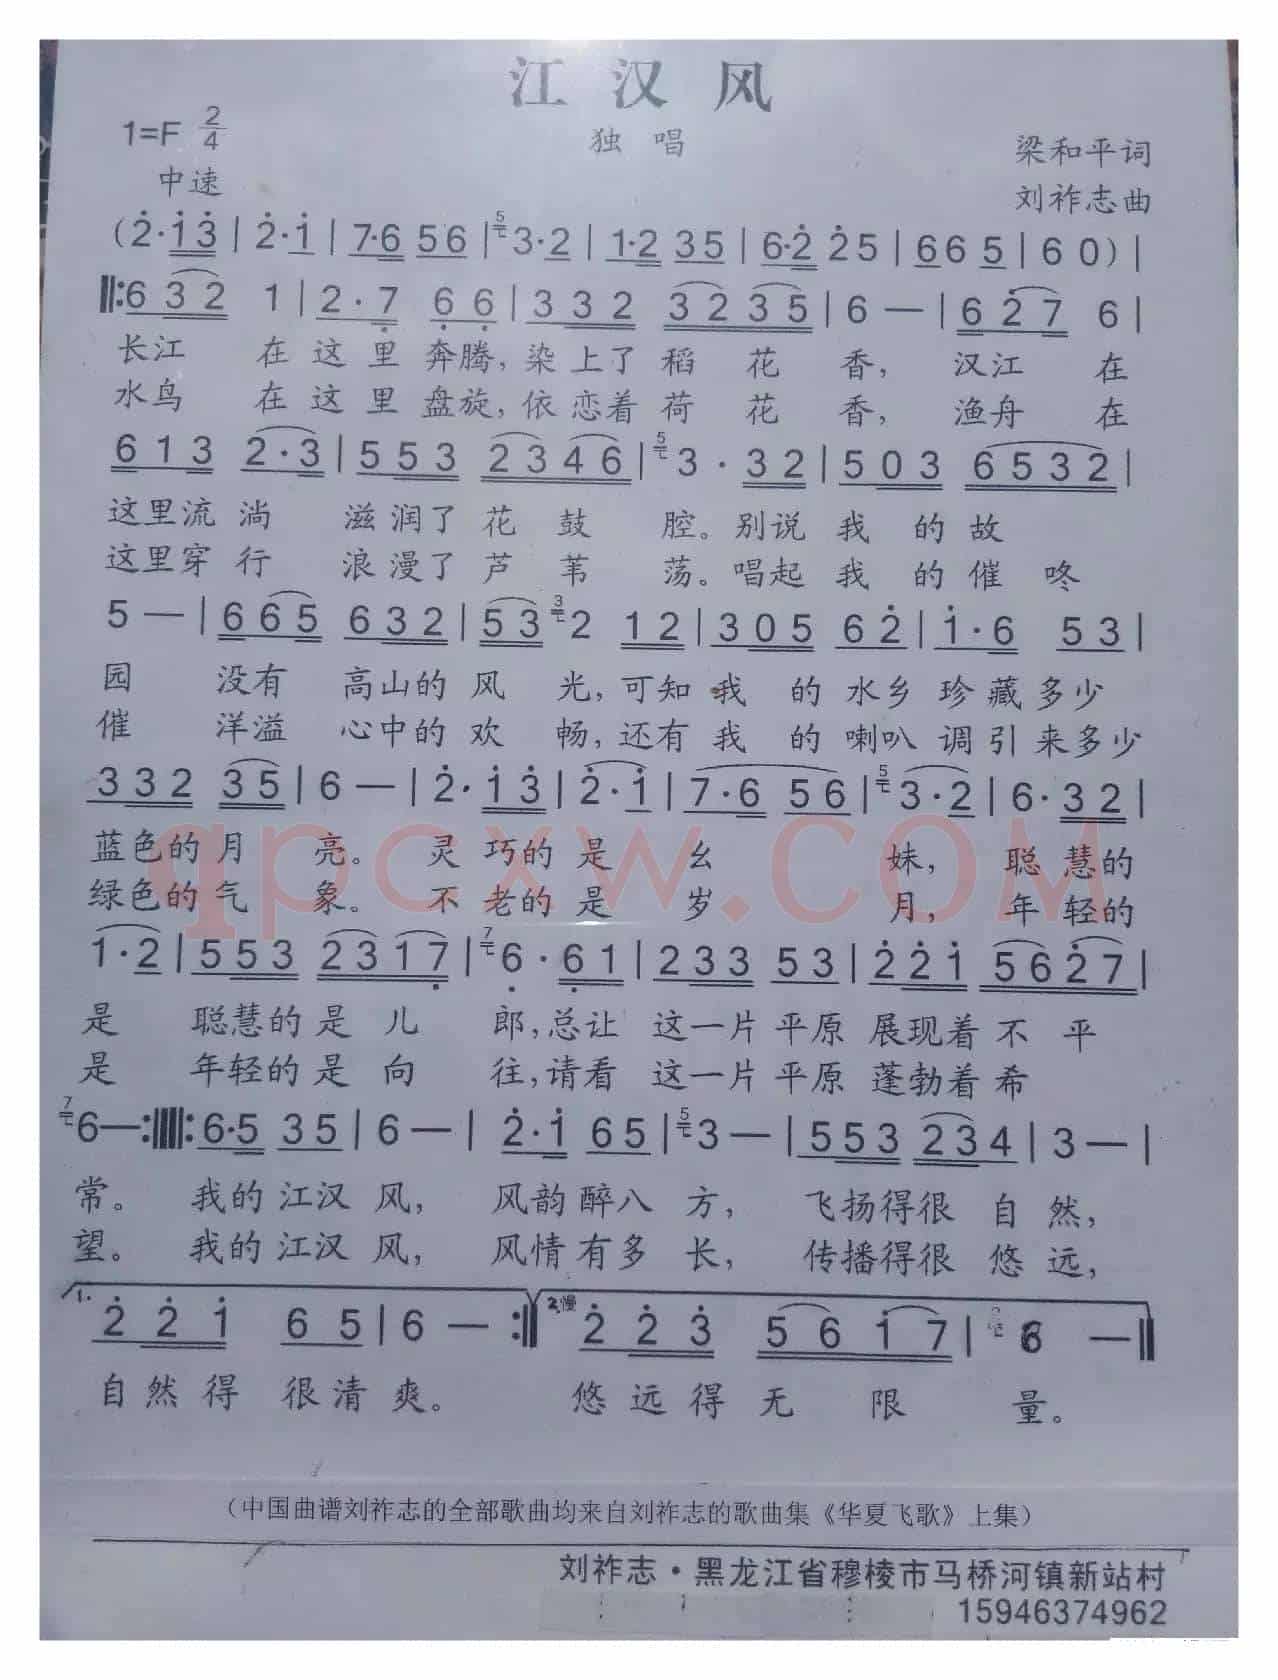 江汉风
1=F 2/4
独唱
梁和平词
中速
刘祚志曲
(2·13|2·1|7·6 56|3·2|1·2 35|6·2 25|66 5|60)|
‖:632 1|2·7 66|332 3235|6—|627 6|
长江 在这里奔腾,染上了稻花香,汉江在
水鸟 在这里盘旋,依恋着荷花香,渔舟在
613 2·3|553 2346|3·32|503 6532|
这里流淌 滋润了花鼓腔。别说我的故
这里穿行 浪漫了芦苇荡。唱起我的催咚
5—|665 632|53 2 12|305 62|1·6 53|
园 没有高山的风光,可知我的水乡珍藏多少
催 洋溢心中的欢畅,还有我的喇叭调引来多少
332 35|6—|2·13|2·1|7·6 56|3·2|6·32|
蓝色的月亮。灵巧的是幺妹,聪慧的
绿色的气象。不老的是岁月,年轻的
1·2|553 2317|6·61|233 53|221 5627|
是 聪慧的是儿郎,总让这一片平原展现着不平
是 年轻的是向往,请看这一片平原蓬勃着希
6—:‖:6·5 35|6—|2·1 65|3—|553 234|3—|
常。我的江汉风,风韵醉八方,飞扬得很自然,
望。我的江汉风,风情有多长,传播得很悠远,
1. 2.慢
221 65|6—:‖223 5617|6—‖
自然得很清爽。悠远得无限量。
(中国曲谱刘祚志的全部歌曲均来自刘祚志的歌曲集《华夏飞歌》上集)
刘祚志·黑龙江省穆棱市马桥河镇新站村
15946374962
qpcxw.COM